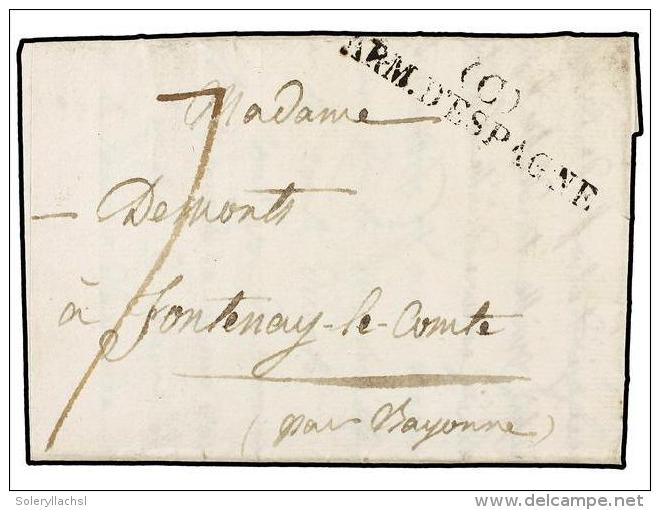 (C)
ARM. D'ESPAGNE
Madame
Demonts
à Fontenay-le-Comte
(par Bayonne)
7
Soleryllachsl
delcampe.net